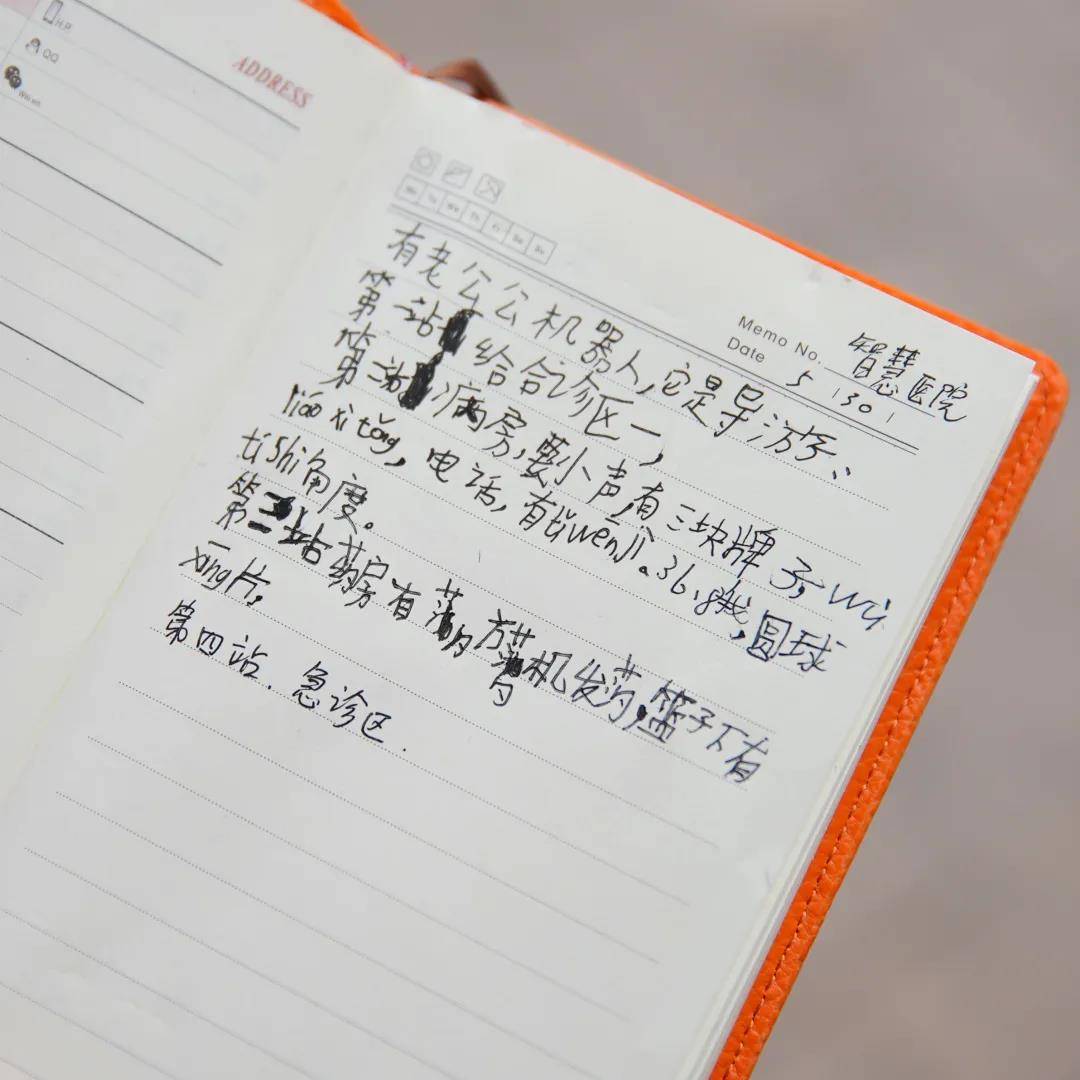 H.P
QQ
ADDRESS
Mo Tu We Th Fr Sa Su
Memo No. 智慧医院
Date 5 130 1
有老公公机器人,它是导游、
第一站 给合诊区一,
第二站 病房,要小声,有三块牌子,wù
liáo xì tǒng,电话,有tǐ wēn jì。36.8哦,圆球
tí shì角度。
第三站药房有 机发药,篮子下有
xīng片,
第四站.急诊区.